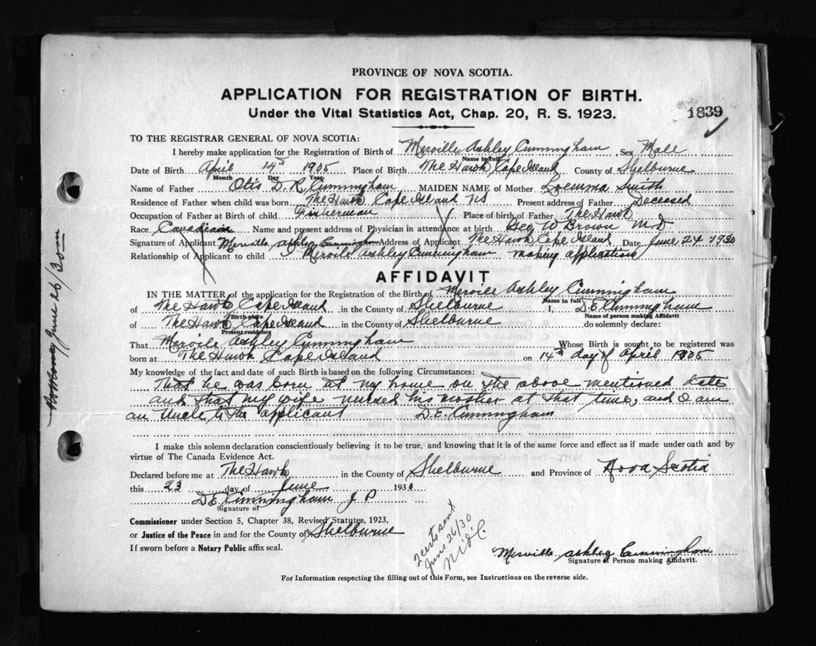 PROVINCE OF NOVA SCOTIA.
APPLICATION FOR REGISTRATION OF BIRTH.
Under the Vital Statistics Act, Chap. 20, R. S. 1923.
1839
TO THE REGISTRAR GENERAL OF NOVA SCOTIA:
I hereby make application for the Registration of Birth of Merville Ashley Cunningham Sex Male
Name in full
Date of Birth April 14th 1905 Place of Birth The Hawk Cape Island County of Shelburne
Month Day Year
Name of Father Otis D. R. Cunningham MAIDEN NAME of Mother Smith
Residence of Father when child was born The Hawk Cape Island NS Present address of Father Deceased
Occupation of Father at Birth of child Fisherman Place of birth of Father The Hawk
Race Canadian Name and present address of Physician in attendance at birth Geo W Brown MD
Signature of Applicant Merville Ashley Cunningham Address of Applicant The Hawk Cape Island Date June 24 1930
Relationship of Applicant to child Ashley Cunningham making application
AFFIDAVIT
IN THE MATTER of the application for the Registration of the Birth of Ashley Cunningham
Name in full
of The Hawk Cape Island in the County of Shelburne I, D. E. Cunningham
Birth place Name of person making Affidavit
of The Hawk Cape Island in the County of Shelburne do solemnly declare:
Present residence
That Ashley Cunningham Whose Birth is sought to be registered was
born at The Hawk Cape Island on 14th day of April 1905
My knowledge of the fact and date of such Birth is based on the following Circumstances:
That he was born at my home on the above mentioned date
and that my wife nursed his mother at that time, and I am
an Uncle to the applicant D. E. Cunningham
I make this solemn declaration conscientiously believing it to be true, and knowing that it is of the same force and effect as if made under oath and by
virtue of The Canada Evidence Act.
Declared before me at The Hawk in the County of Shelburne and Province of Nova Scotia
this 23 day of June 1930
D E Cunningham J P
Signature of
Commissioner under Section 5, Chapter 38, Revised Statutes, 1923,
or Justice of the Peace in and for the County of Shelburne
If sworn before a Notary Public affix seal.
2 certs sent
June 26/30
Merville Ashley Cunningham
Signature of Person making Affidavit.
For Information respecting the filling out of this Form, see Instructions on the reverse side.
June 26/30